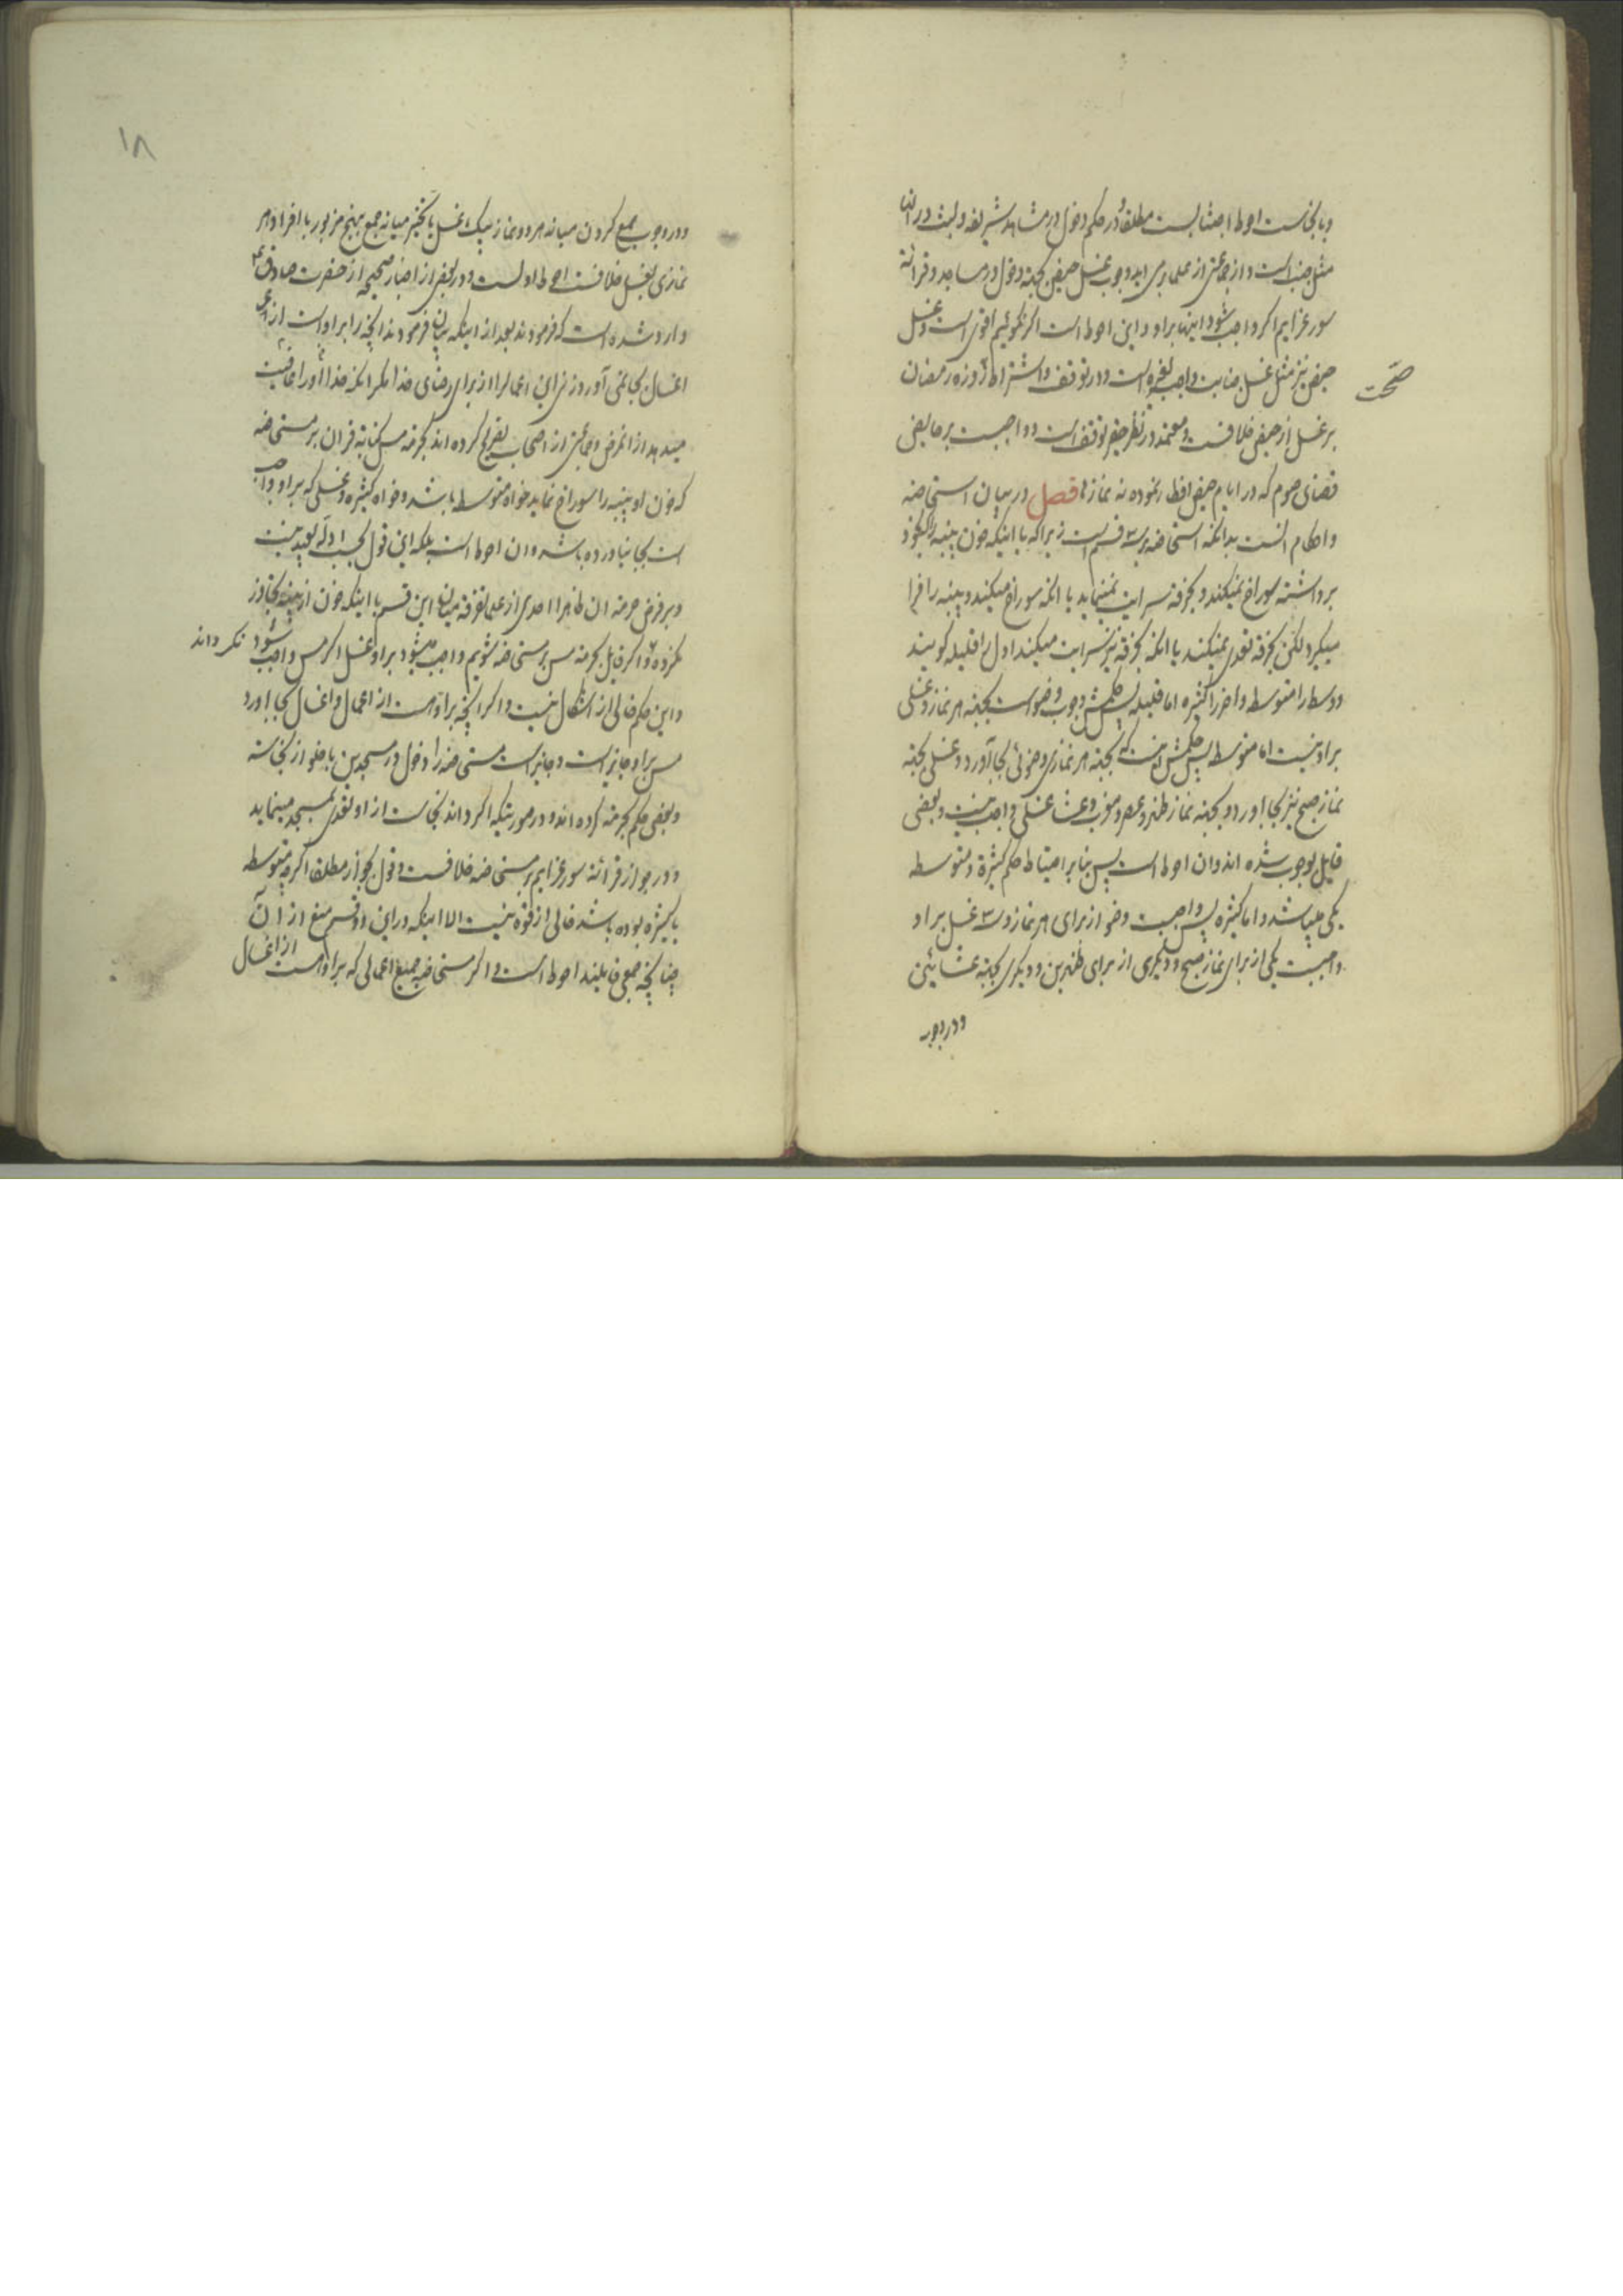 وبا نجاست احوط اجتنابست مطلقا و در حکم دخول در مشاهد شریفه و لبث در آنها
مثل جنب است و از جماعتی از علما برمی آید وجوب غسل حیض بجهة دخول در مساجد و قرائة
سور عزایم اگر واجب شود اینها بر او و این احوط است اگر نگوئیم اقوی است و غسل
حیض نیز مثل غسل جنابت واجب لغیره است و در توقف و اشتراط روزه رمضان
صحت
بر غسل از حیض خلافست و معتمد در نظر حقیر توقف است و واجبست بر حایض
قضای صوم که در ایام حیض افطار نموده نه نماز فصل در بیان استحاضه
و احکام انست بدانکه استحاضه بر سه قسم است زیرا که یا اینکه خون پنبه را که بخود
برداشته سوراخ نمیکند و بخرقه سرایت نمینماید یا انکه سوراخ میکند و پنبه را فرا
میگیرد لکن بخرقه تعدی نمیکند یا انکه بخرقه نیز سرایت میکند اول را قلیله گویند
و وسط را متوسط و اخر را کثیره اما قلیله پس حکمش وجوب وضو است بجهة هر نماز و غسلی
بر او نیست اما متوسط پس حکمش اینست که بجهة هر نمازی وضوئی بجا آورد و غسلی بجهة
نماز صبح نیز بجا اورد و بجهة نماز ظهر و عصر و مغرب و عشا غسلی واجب نیست و بعضی
قایل بوجوب شده اند و ان احوط است پس بنابر احتیاط حکم کثیرة و متوسطه
یکی میباشد و اما کثیره پس واجبست وضو از برای هر نماز و سه غسل بر او
واجبست یکی از برای نماز صبح و دیگری از برای ظهرین و دیگری بجهة عشائین
و در وجوب
۱۸
و در وجوب جمع کردن میانه هر دو نماز بیک غسل یا تخییر میانه جمع بنهج مزبور یا افراد هر
نمازی بغسل خلافست احوط اولست و در بعضی از اخبار صحیحه از حضرت صادق ع
وارد شده است که فرمودند بعد از اینکه بیان فرمودند انچه را بر او است از
اغسال بجا نمی آورد زنی این اعمال را از برای رضای خدا مگر انکه خدا او را عافیت
میدهد از انمرض و جماعتی از اصحاب تصریح کرده اند بحرمة مس کتابة قران بر مستحاضه
که خون او پنبه را سوراخ نماید خواه متوسط باشد و خواه کثیره و غسلی که بر او واجب
است بجا نیاورده باشد و ان احوط است بلکه این قول بحسب ادله بعید نیست
و بر فرض حرمة ان ظاهرا احدی از علما تفرقه میان این قسم با اینکه خون از پنبه تجاوز
نکرده و اگر قایل بحرمة مس بر مستحاضه شویم واجب میشود بر او غسل اگر مس واجب شود
نکرده اند
و این حکم خالی از اشکال نیست و اگر انچه بر او است از اعمال و اغسال بجا اورد
مس بر او جایز است و جایز است مستحاضه را دخول در مسجدین با خلو از نجاسة
و بعضی حکم بحرمة کرده اند و در صورتیکه اگر داند نجاست از او تعدی بمسجد مینماید
و در جواز قرائة سور عزایم بر مستحاضه خلافست و قول بجواز مطلقا اگرچه متوسطه
یا کثیره بوده باشد خالی از قوة نیست الا اینکه در این دو قسم منع از آن
چنانچه جمعی قایلند احوط است و اگر مستحاضه جمیع اعمالی که بر او است از اغسال